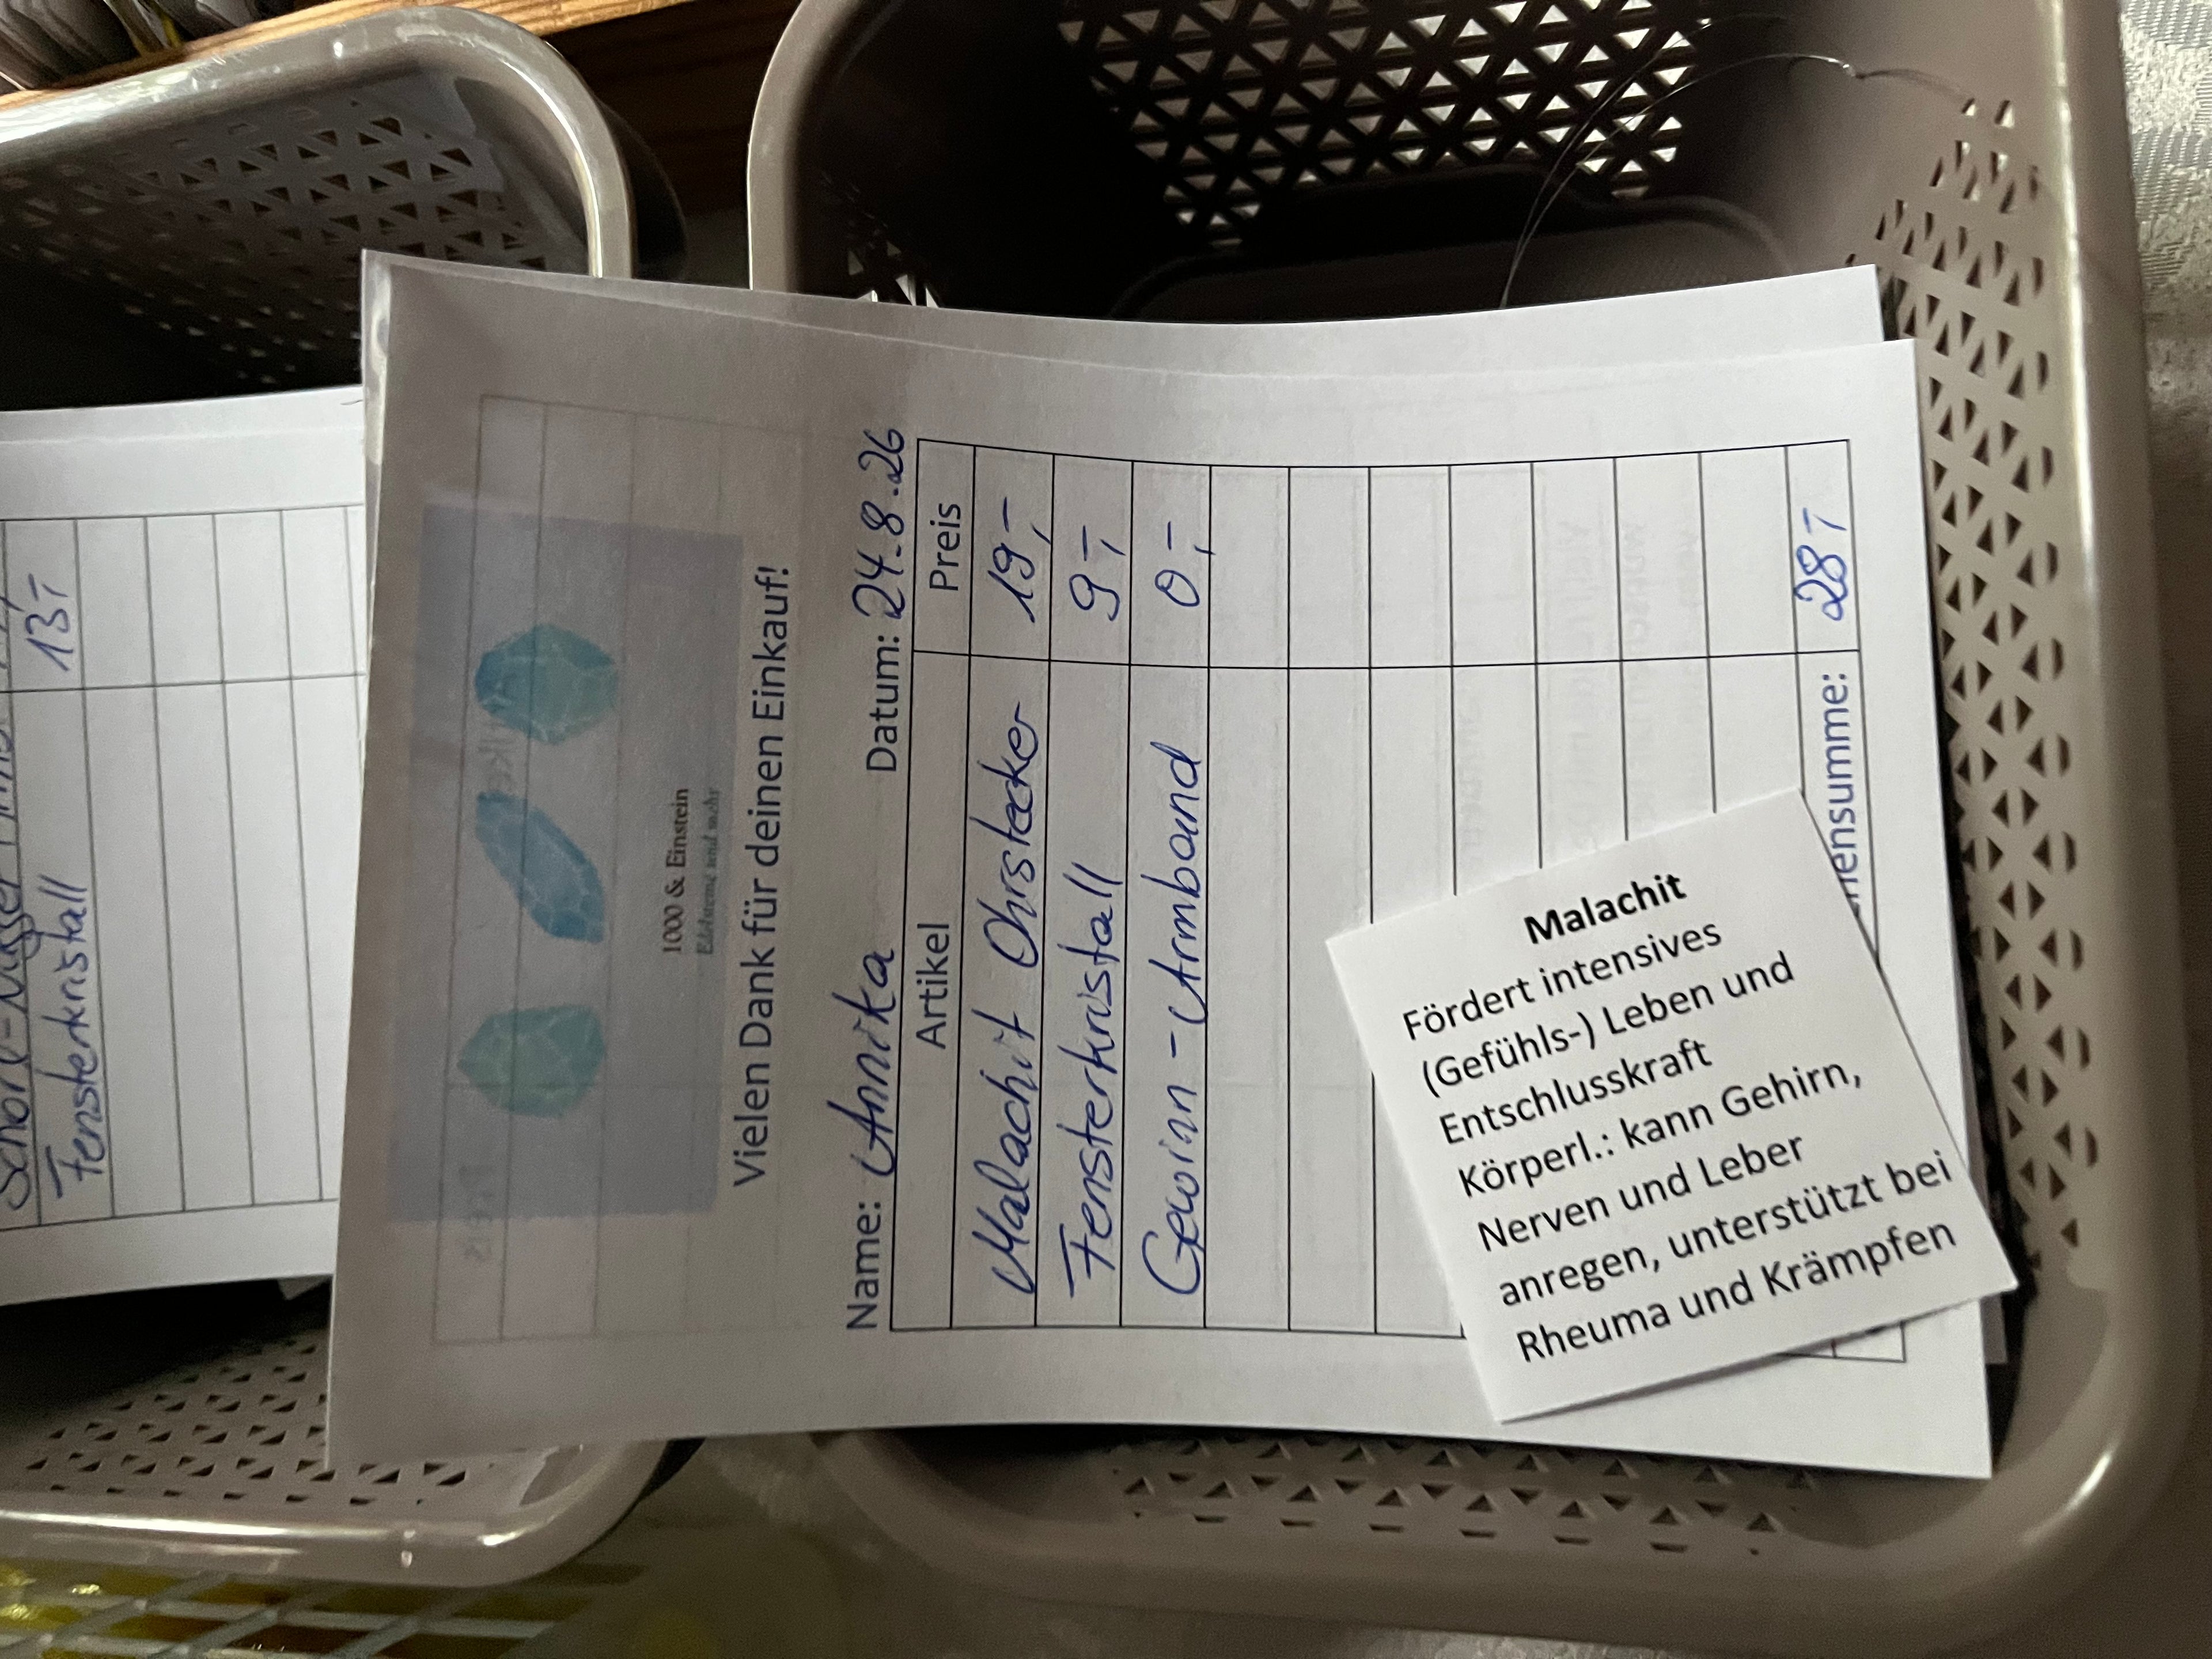 Fensterkristall 13,-
1000 & Einstein
Edelsteine und mehr
Vielen Dank für deinen Einkauf!
Name: Annika Datum: 24.8.26
Artikel Preis
Malachit Ohrstecker 19,-
Fensterkristall 9,-
Gewinn-Armband 0,-
ensumme: 28,-
Malachit
Fördert intensives
(Gefühls-) Leben und
Entschlusskraft
Körperl.: kann Gehirn,
Nerven und Leber
anregen, unterstützt bei
Rheuma und Krämpfen